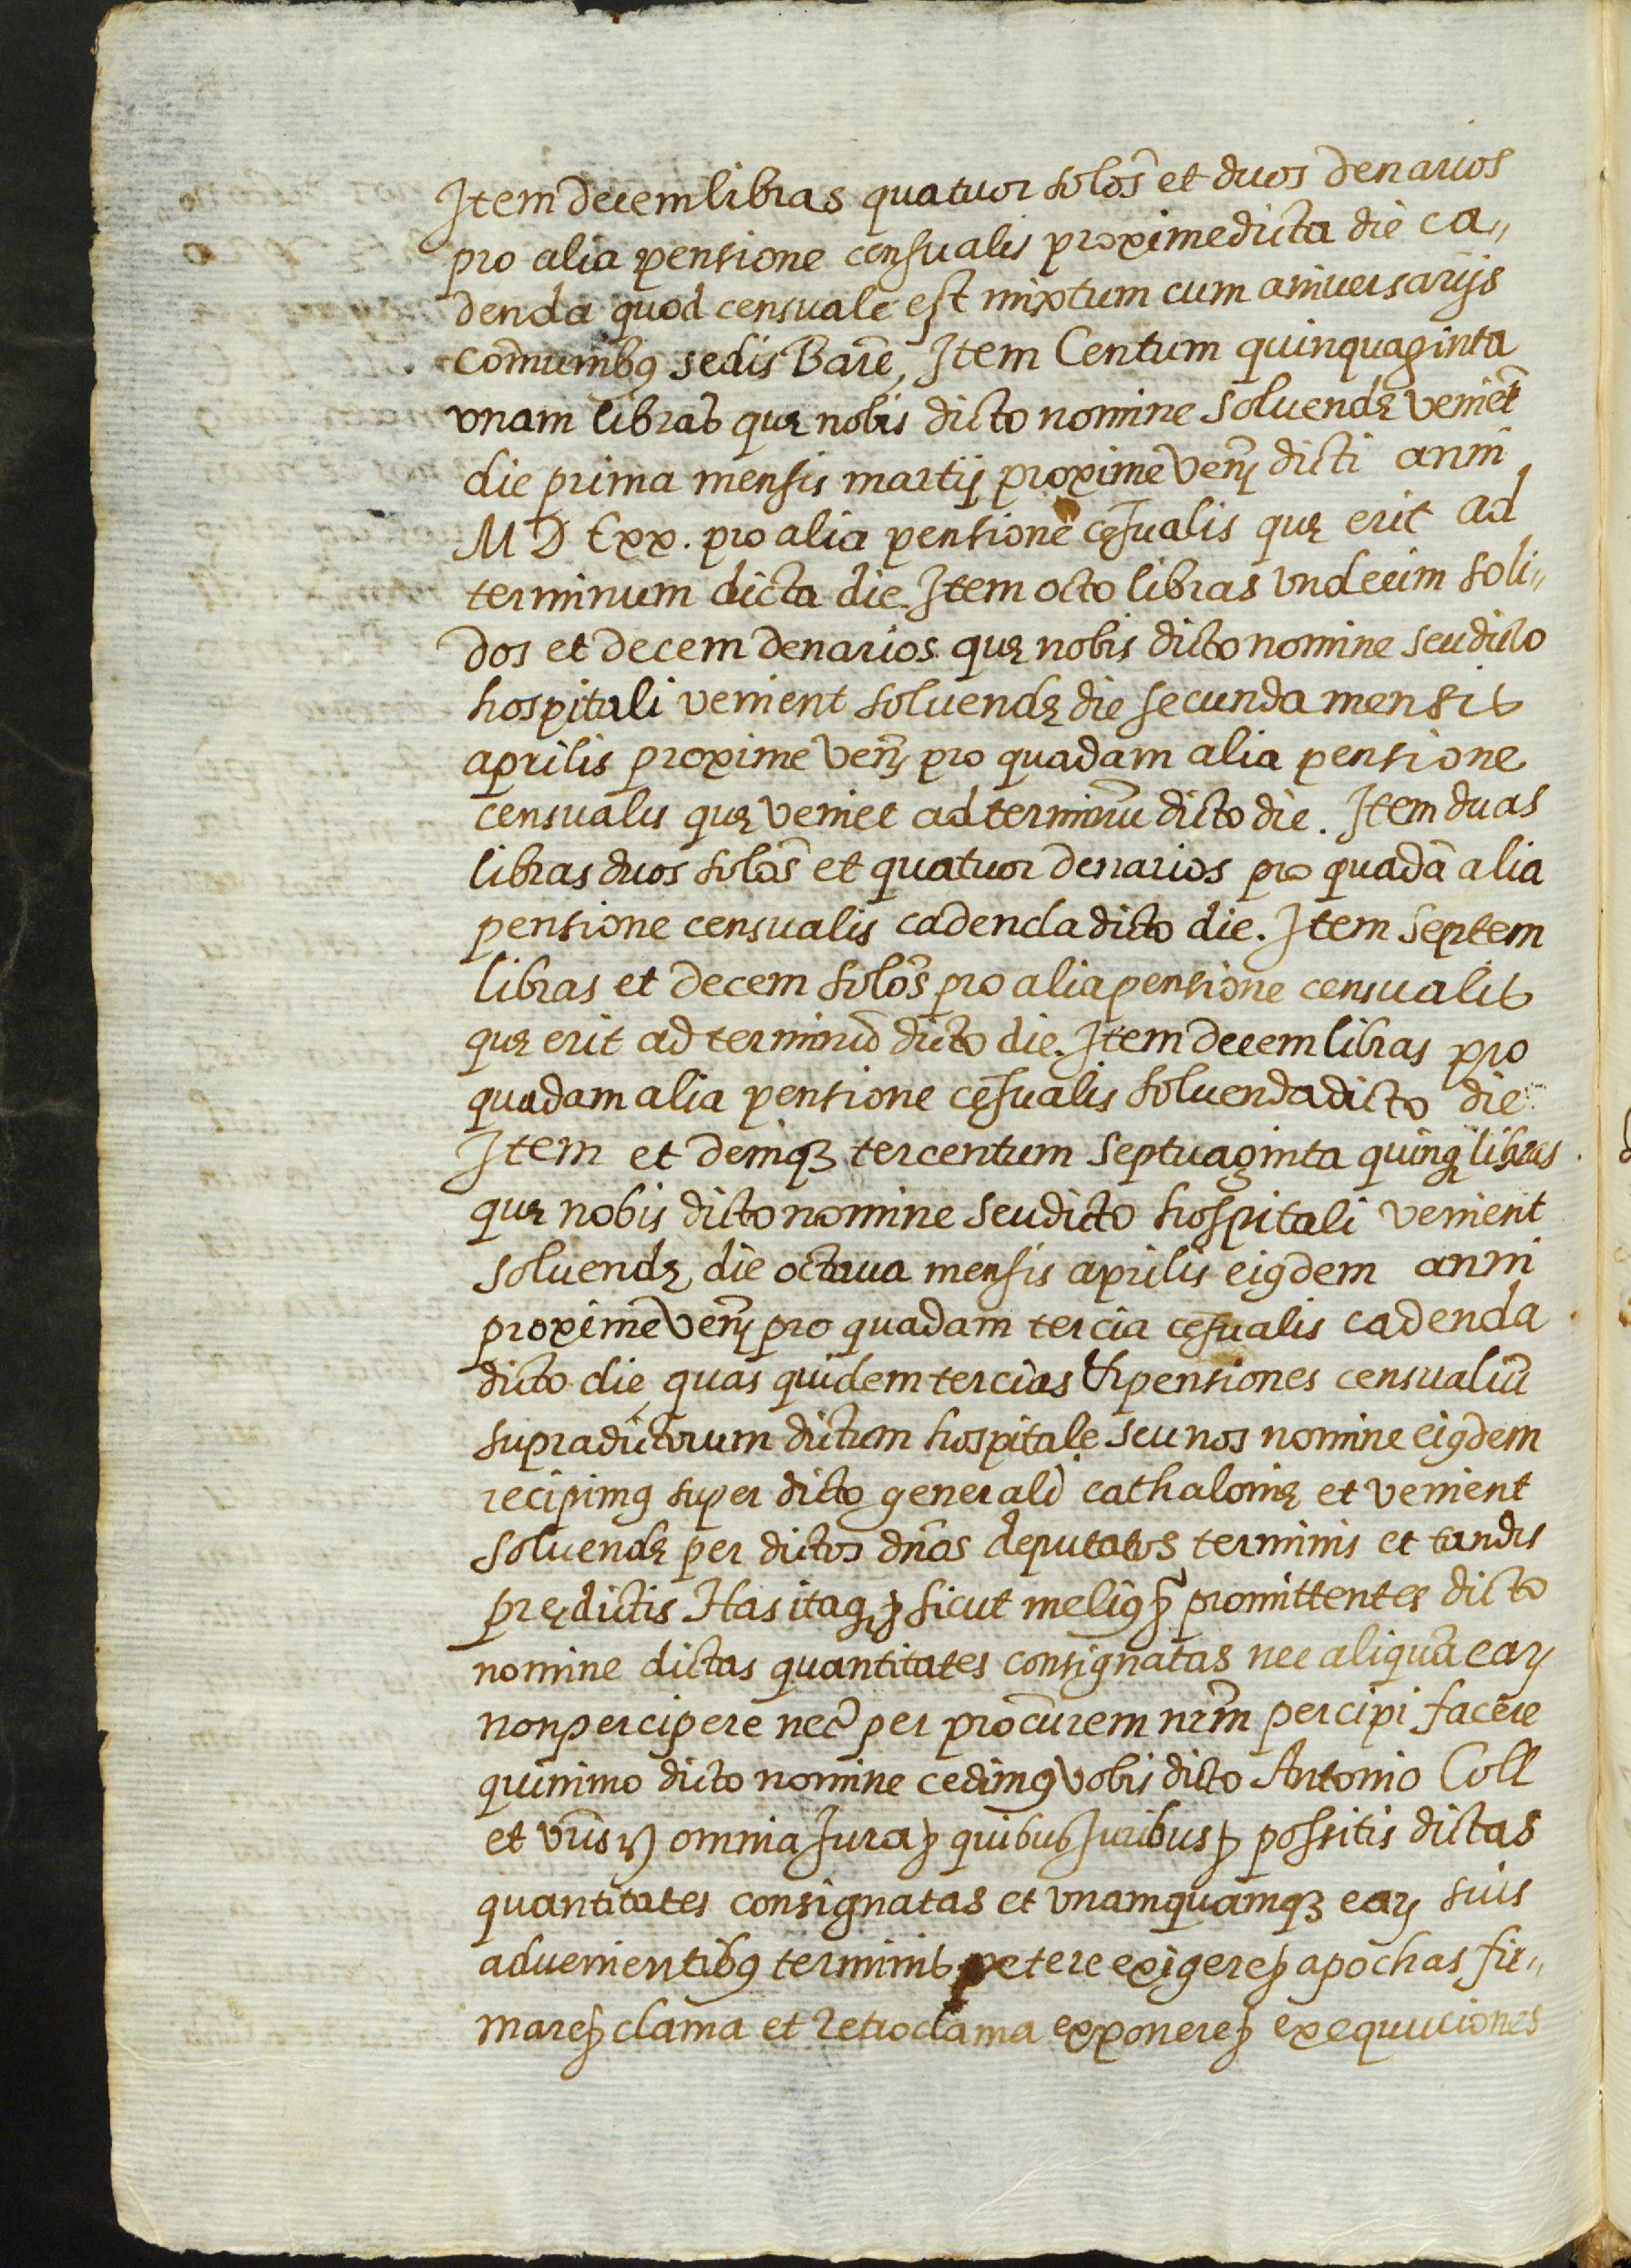 Item decem libras quatuor solōs et duos denarios
pro alia pensione censualis proxime dicta die ca„
denda quod censuale est mixtum cum aniuersarijs
com̄unibꝰ sedis Barc̄, Item Centum quinquaginta
vnam libras quę nobis dicto nomine soluendę veniēt
die prima mensis martij proxime venꝭ dicti anni
M D Lxx. pro alia pensione cēsualis quę erit ad
terminum dicta die. Item octo libras vndecim soli„
dos et decem denarios quę nobis dicto nomine seu dicto
hospitali venient soluendę die secunda mensis
aprilis proxime venꝭ pro quadam alia pensione
censualis quę veniet ad terminū dicto die. Item duas
libras duos solōs et quatuor denarios pro quadā alia
pensione censualis cadenda dicto die. Item septem
libras et decem solōs pro alia pensione censualis
quę erit ad terminū dicto die. Item decem libras pro
quadam alia pensione cēsualis soluenda dicto die
Item et deniqꝫ tercentum septuaginta quinqꝫ libras
quę nobis dicto nomine seu dicto hospitali venient
soluendę die octaua mensis aprilis eiꝰdem anni
proxime venꝭ pro quadam tercia cēsualis cadenda
dicto die, quas quidem tercias & pensiones censualiū
supradictorum dictum hospitale seu nos nomine eiꝰdem
recipimꝰ super dicto generali cathalonię et venient
soluendę per dictos dn̄os deputatos terminis et tandis
prędictis Has itaqꝫ ꝫ sicut meliꝰ ꝫ promittentes dicto
nomine dictas quantitates consignatas nec aliquā eaꝝ
non percipere nec per procūrem nr̄m percipi facere
quinimo dicto nomine cedimꝰ vobis dicto Antonio Coll
et vr̄is ꝫ omnia Jura ꝫ quibus Juribus ꝫ possitis dictas
quantitates consignatas et vnamquamqꝫ eaꝝ suis
aduenientibꝰ terminis petere exigere ꝫ apochas fir„
mare ꝫ clama et retroclama exponere ꝫ exequuciones